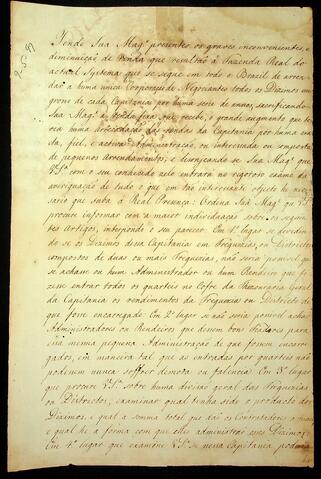 Tendo Sua Mag.e presentes os graves inconvenientes, e
deminuição de Renda que resultão à Fazenda Real do
actual Systema que se segue em todo o Brazil de arren-
dar a huma unica Corporação de Negociantes todos os Dizimos em
grosso de cada Capitania por huma serie de annos, sacrificando
Sua Mag.e a Renda fixa que recebe, o grande augmento que te-
ria huma Arrecadação das Rendas da Capitania por huma exa-
cta, fiel, e activa Administração, ou interessada ou composta
de pequenos Arrendamentos; e desejando se Sua Mag.e que
V.S.ª com o seu conhecido zelo entrará no rigoroso exame da
averiguação de tudo o que em tão interessante objecto he neces-
sario que suba à Real Presença: Ordena Sua Mag.e que V.S.ª
procure informar com a maior individuação sobre os seguin-
tes Artigos, interpondo o seu parecer. Em 1.º lugar se dividin-
do se os Dizimos dessa Capitania em Freguezias, ou Districtos
compostos de duas ou mais Freguezias, não seria possivel que
se achasse ou hum Administrador ou hum Rendeiro que fi-
zesse entrar todos os quarteis no Cofre da Thezouraria Geral
da Capitania os rendimentos da Freguezia ou Districto de
que fosse encarregado: Em 2.º lugar se não seria possivel achar
Administradores ou Rendeiros que dessem boas fianças para
essa mesma pequena Administração de que fossem encarre-
gados, em maneira tal que as entradas por quarteis não
podessem nunca soffrer demora ou falencia: Em 3.º lugar
que procure V.S.ª sobre huma divisão geral das Freguezias
ou Districtos, examinar qual tenha sido o producto dos
Dizimos, e qual a somma total que dão os Contratadores,
e qual he a forma com que elles administrão esses Dizimos:
Em 4.º lugar que examine V.S.ª se nessa Capitania poderia